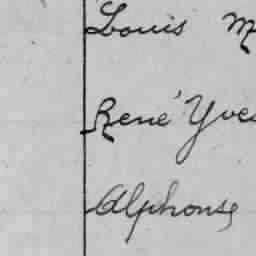 Louis M
René Yves
Alphonse